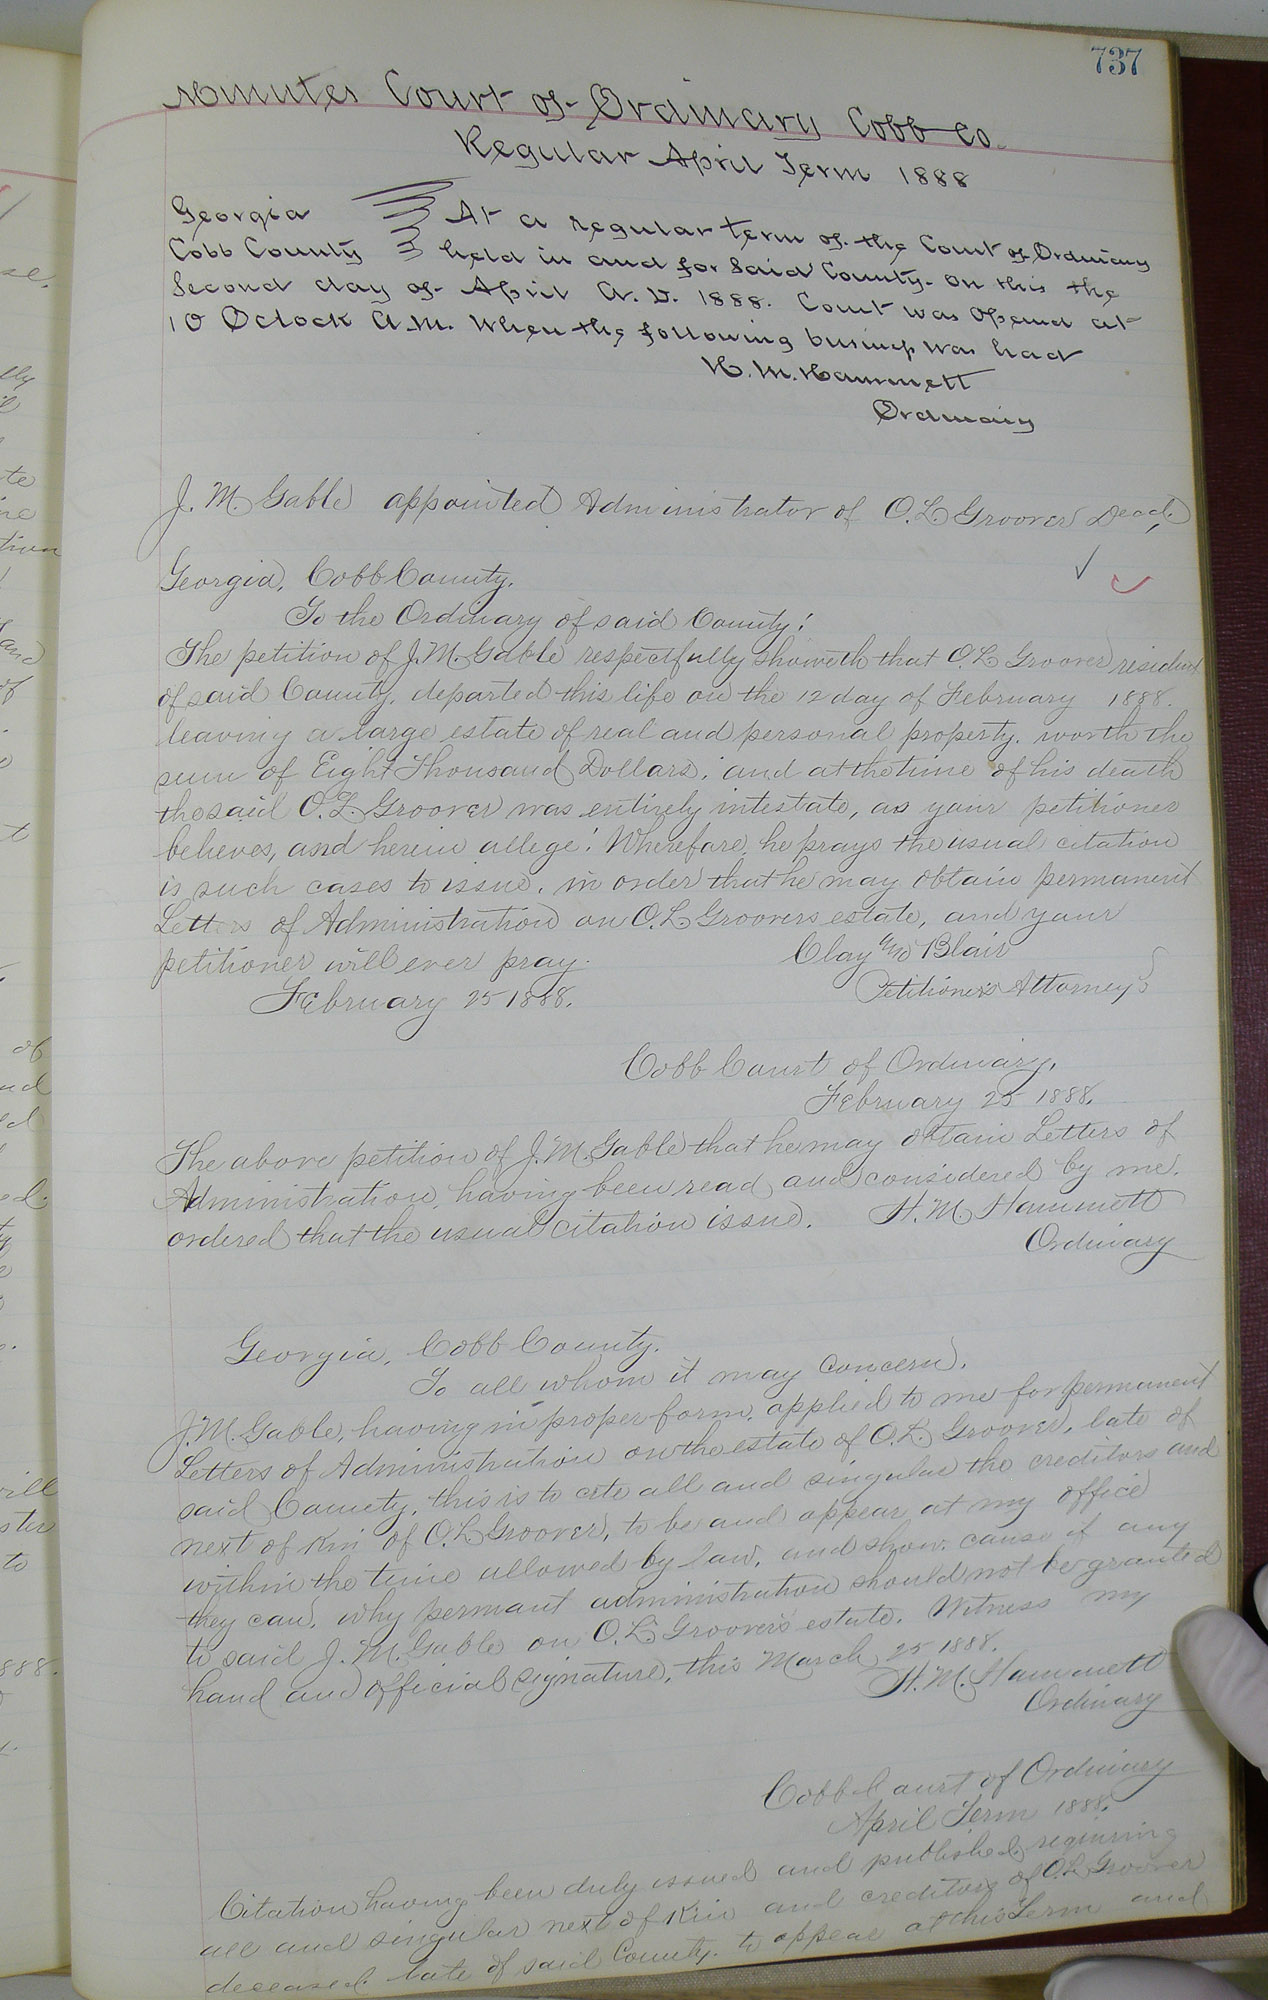 737
Minutes Court of Ordinary Cobb Co.
Regular April Term 1888
Georgia
Cobb County
At a regular term of the Court of Ordinary
held in and for said County on this the
Second day of April A.D. 1888. Court was opened at
10 Oclock A.M. When the following business was had
H. M. Hammett
Ordinary
J. M. Gable appointed Administrator of O. L. Groover Decd,
Georgia, Cobb County.
To the Ordinary of said County:
The petition of J. M. Gable respectfully showeth that O. L. Groover resident
of said County, departed this life on the 12 day of February 1888.
leaving a large estate of real and personal property. worth the
sum of Eight Thousand Dollars: and at the time of his death
the said O. L. Groover was entirely intestate, as your petitioner
believes, and herein allege: Wherefore, he prays the usual citation
is such cases to issue, in order that he may obtain permanent
Letters of Administration on O. L. Groovers estate, and your
petitioner will ever pray.
Clay and Blair
February 25 1888.
Petitioners Attorneys
Cobb Court of Ordinary,
February 25 1888.
The above petition of J. M. Gable that he may obtain Letters of
Administration, having been read, and considered by me.
ordered that the usual citation issue.
H. M. Hammett
Ordinary
Georgia, Cobb County.
To all whom it may Concern.
J. M. Gable, having in proper form, applied to me for permanent
Letters of Administration on the estate of O. L. Groover, late of
said County, this is to cite all and singular the creditors and
next of Kin of O. L. Groover, to be and appear at my office
within the time allowed by law, and show cause if any
they can, why permant administration should not be granted
to said J. M. Gable on O. L. Groover's estate. Witness my
hand and official signature, this March 25 1888.
H. M. Hammett
Ordinary
Cobb Court of Ordinary
April Term 1888.
Citation having been duly issued and published
all and singular next of Kin and creditors of O. L. Groover
deceased late of said County. to appear at this Term and